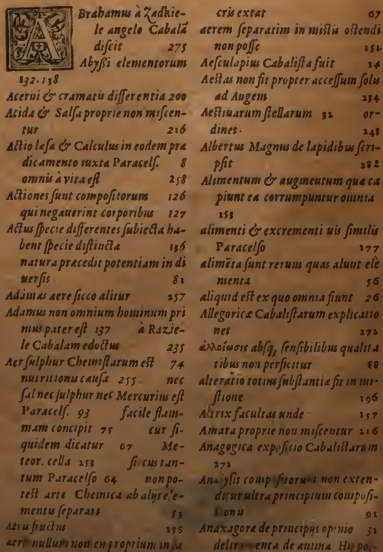 Abrahamus à Zadkie-
le angelo Cabalā
discit 275
Abyssi elementorum
132.138
Acerui & cramatis differentia 200
Acida & Salsa proprie non miscen-
tur 216
Actio læsa & Calculus in eodem præ
dicamento iuxta Paracels. 8
omnis à vita est 258
Actiones sunt compositorum 126
qui negauerint corporibus 127
Actus specie differentes subiecta ha-
bent specie distincta 136
natura præcedit potentiam in di
uersis 82
Adamas aere sicco alitur 257
Adamus non omnium hominum pri
mus pater est 137 à Razie-
le Cabalam edoctus 235
Aer sulphur Chemistarum est 74
nutritionis causa 255 nec
sal nec sulphur nec Mercurius est
Paracels. 93 facile flam-
mam concipit 75 cur si-
quidem dicatur 67 Me-
teor. cella 252 siccus tan-
tum Paracelso 64 non po-
test arte Chemica ab alys ele-
mentis separari 53
Aeris fructus
aere nullum non en proprium in sa
cris extat 67
aerem separatim in mistis ostendi
non posse 151
Aesculapius Cabalista fuit 14
Aestas non fit propter accessum solis
ad Augem 234
Aestuarium stellarum 32 or-
dines 248
Albertus Magnus de lapidibus scri-
psit 282
Alimentum & augmentum quæ ca
piunt ea corrumpuntur omnia
155
alimenti & excrementi uis similis
Paracelso 177
alimēta sunt rerum quas alunt ele
menta 56
aliquid est ex quo omnia fiunt 26
Allegoricæ Cabalistarum explicatio
nes 272
ἀλλοίωσις absq; sensibilibus qualita
tibus non perficitur 88
alteratio totius substantiæ fit in mi-
stione 196
Altrix facultas unde 157
Amara proprie non miscentur 216
Anagogica expositio Cabalistarum
272
Analysis compositorum non exten-
ditur ultra principium composi-
tionis 91
Anaxagoræ de principiis opinio 31
deliramenta de anima Hippo